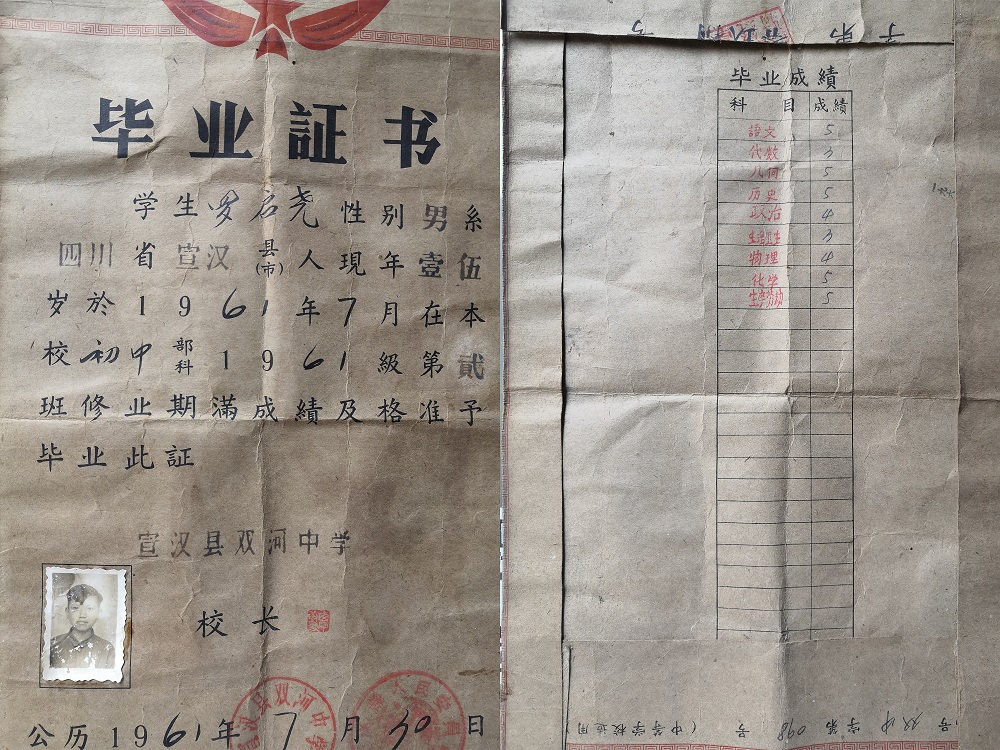 毕业証书
学生罗启尧性别男系
四川省宣汉县(市)人現年壹伍
岁於1961年7月在本
校初中部科1961級第貳
班修业期滿成績及格准予
毕业此証
宣汉县双河中学
校长
公历1961年7月30日
宣汉县双河中学
毕业成績
科目 成績
語文 5
代数 3
几何 5
历史 5
政治 4
生活卫生 3
物理 4
化学 5
生产劳动 5
双中字第098号
(中等学校适用)